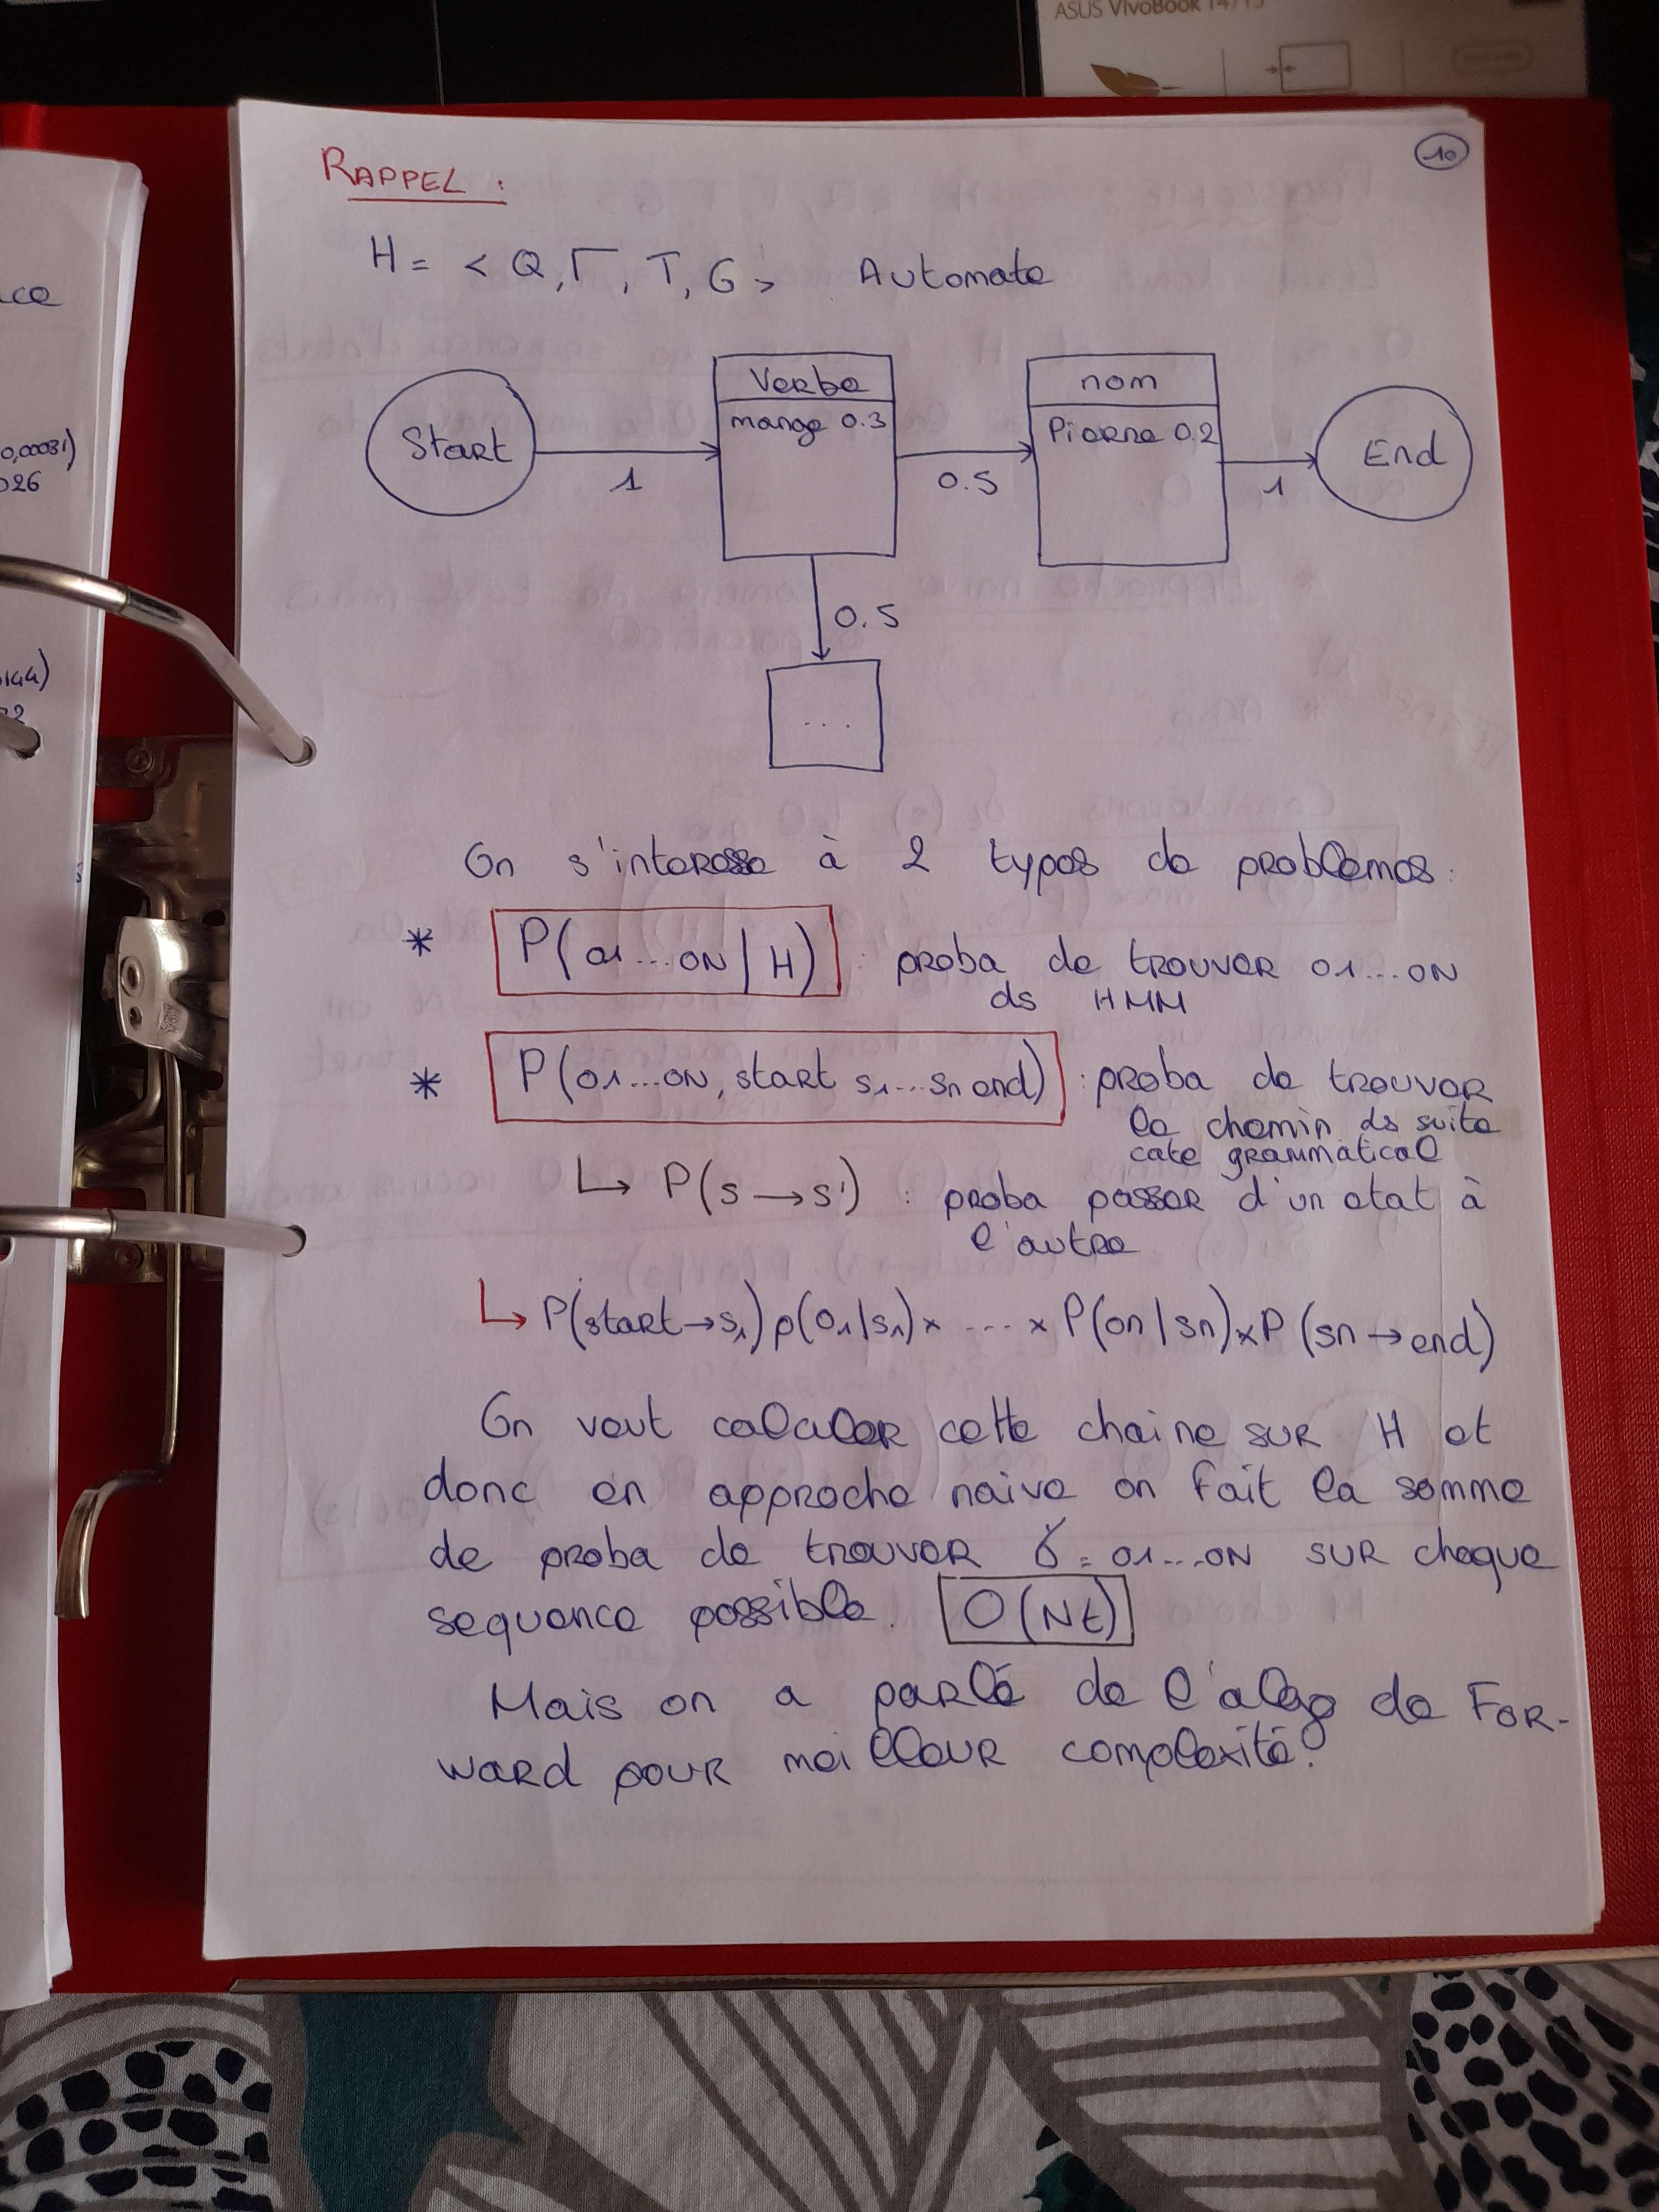 ASUS VivoBook 14/15
10
RAPPEL :
H = < Q, Γ, T, G > Automate
Start
1
Verbe
mange 0.3
0.5
nom
Pierre 0.2
1
End
0.5
...
On s'interesse à 2 types de problemes :
* P(o1...oN | H) : proba de trouver o1...oN
ds HMM
* P(o1...oN, start s1...sn end) : proba de trouver
le chemin ds suite
cate grammatical
↳ P(s → s') : proba passer d'un etat à
l'autre
↳ P(start→s1) p(o1|s1) × ... × P(on|sn) × P(sn → end)
On veut calculer cette chaine sur H et
donc en approche naive on fait la somme
de proba de trouver õ = o1...oN sur chaque
sequence possible. O(Nt)
Mais on a parlé de l'algo de For-
ward pour meilleur complexité.
ce
0,00031)
026
144)